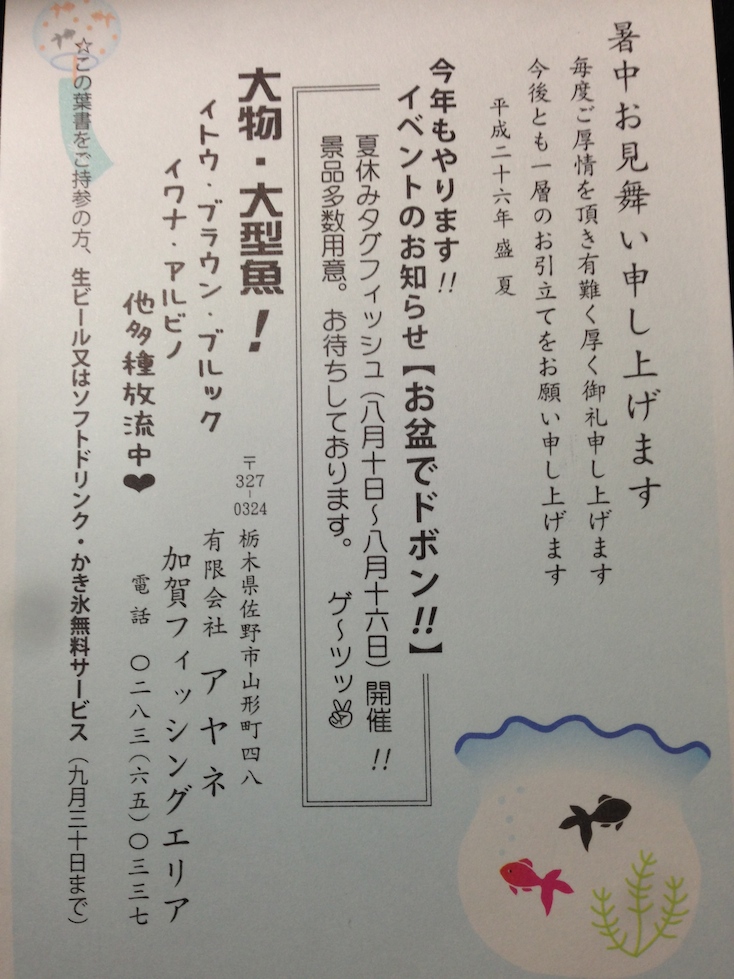 暑中お見舞い申し上げます
毎度ご厚情を頂き有難く厚く御礼申し上げます
今後とも一層のお引立てをお願い申し上げます
平成二十六年 盛夏
今年もやります!!
イベントのお知らせ【お盆でドボン!!】
夏休みタグフィッシュ(八月十日~八月十六日)開催!!
景品多数用意。お待ちしております。 ゲ~ツッ✌
大物・大型魚!
イトウ・ブラウン・ブルック
イワナ・アルビノ
他多種放流中❤
〒327-0324 栃木県佐野市山形町四八
有限会社 アヤネ
加賀フィッシングエリア
電話 〇二八三(六五)〇三三七
☆この葉書をご持参の方、生ビール又はソフトドリンク・かき氷無料サービス(九月三十日まで)